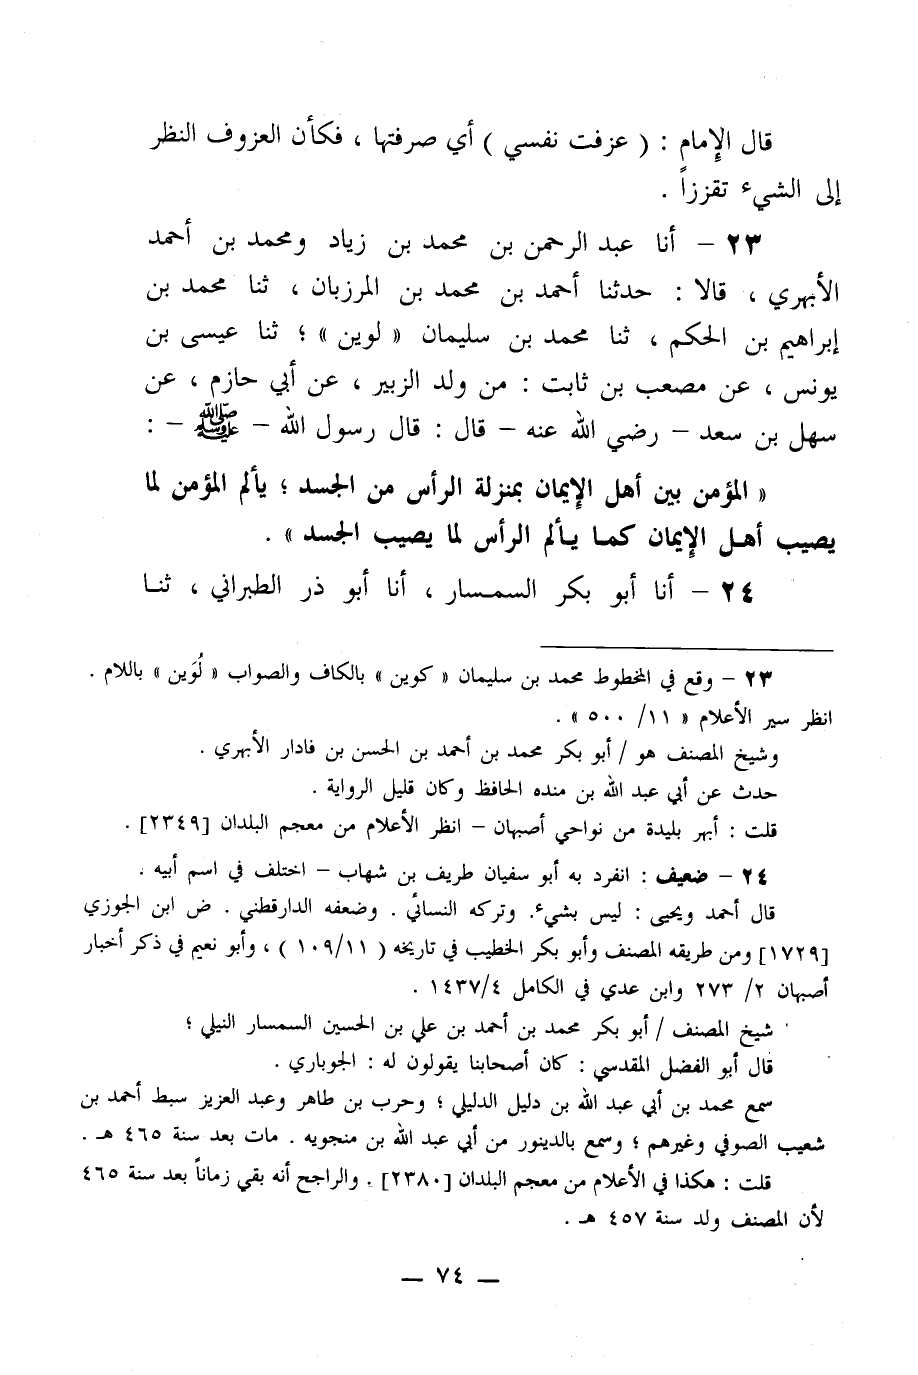 قال الإمام : ( عزفت نفسي ) أي صرفتها ، فكأن العزوف النظر
إلى الشيء تقززاً .
٢٣ – أنا عبد الرحمن بن محمد بن زياد ومحمد بن أحمد
الأبهري ، قالا : حدثنا أحمد بن محمد بن المرزبان ، ثنا محمد بن
إبراهيم بن الحكم ، ثنا محمد بن سليمان « لوين » ؛ ثنا عيسى بن
يونس ، عن مصعب بن ثابت : من ولد الزبير ، عن أبي حازم ، عن
سهل بن سعد – رضي الله عنه – قال : قال رسول الله – ﷺ – :
« المؤمن بين أهل الإيمان بمنزلة الرأس من الجسد ؛ يألم المؤمن لما
يصيب أهل الإيمان كما يألم الرأس لما يصيب الجسد » .
٢٤ – أنا أبو بكر السمسار ، أنا أبو ذر الطبراني ، ثنا
٢٣ – وقع في المخطوط محمد بن سليمان « كوين » بالكاف والصواب « لُوَين » باللام .
انظر سير الأعلام « ١١/ ٥٠٠ » .
وشيخ المصنف هو / أبو بكر محمد بن أحمد بن الحسن بن فادار الأبهري .
حدث عن أبي عبد الله بن منده الحافظ وكان قليل الرواية .
قلت : أبهر بليدة من نواحي أصبهان – انظر الأعلام من معجم البلدان [٢٣٤٩] .
٢٤ – ضعيف : انفرد به أبو سفيان طريف بن شهاب – اختلف في اسم أبيه .
قال أحمد ويحيى : ليس بشيء. وتركه النسائي . وضعفه الدارقطني . ض ابن الجوزي
[١٧٢٩] ومن طريقه المصنف وأبو بكر الخطيب في تاريخه ( ١٠٩/١١ ) ، وأبو نعيم في ذكر أخبار
أصبهان ٢/ ٢٧٣ وابن عدي في الكامل ١٤٣٧/٤ .
شيخ المصنف / أبو بكر محمد بن أحمد بن علي بن الحسين السمسار النيلي ؛
قال أبو الفضل المقدسي : كان أصحابنا يقولون له : الجوباري .
سمع محمد بن أبي عبد الله بن دليل الدليلي ؛ وحرب بن طاهر وعبد العزيز سبط أحمد بن
شعيب الصوفي وغيرهم ؛ وسمع بالدينور من أبي عبد الله بن منجويه . مات بعد سنة ٤٦٥ هـ .
قلت : هكذا في الأعلام من معجم البلدان [٢٣٨٠] . والراجح أنه بقي زماناً بعد سنة ٤٦٥
لأن المصنف ولد سنة ٤٥٧ هـ .
— ٧٤ —